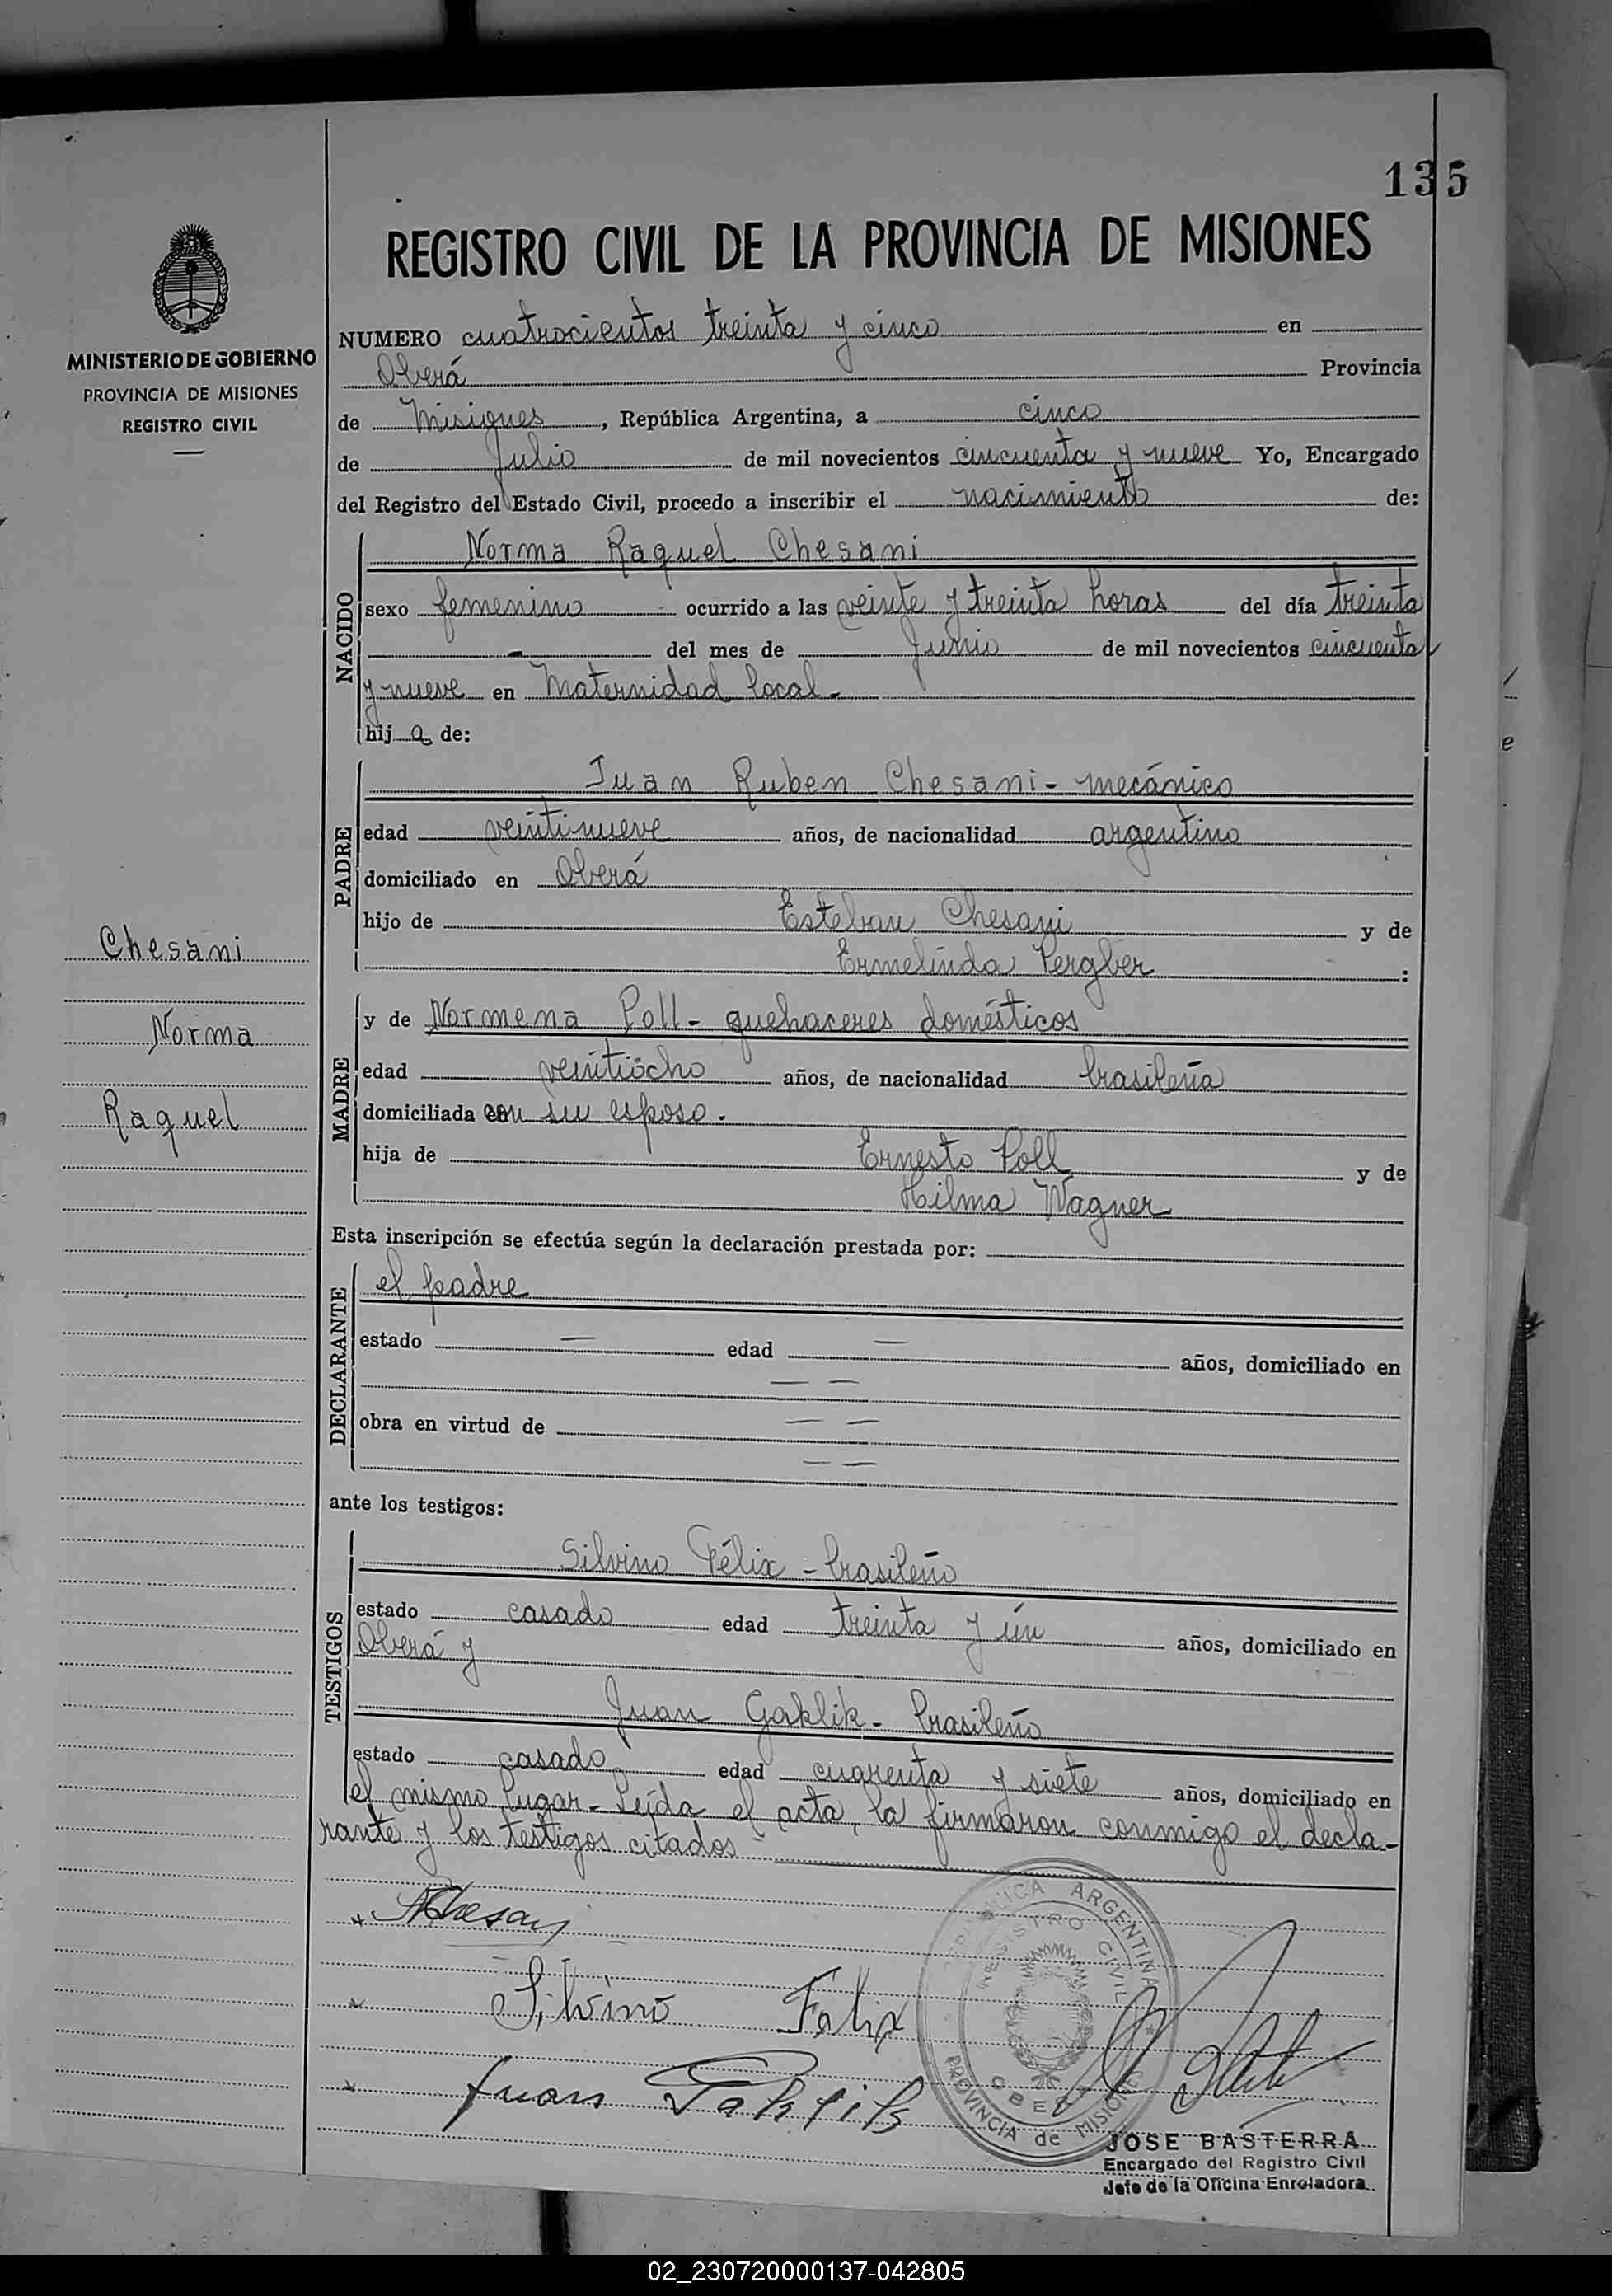 135
REGISTRO CIVIL DE LA PROVINCIA DE MISIONES
MINISTERIO DE GOBIERNO
PROVINCIA DE MISIONES
REGISTRO CIVIL
NUMERO cuatrocientos treinta y cinco en
Oberá Provincia
de Misiones, República Argentina, a cinco
de Julio de mil novecientos cincuenta y nueve Yo, Encargado
del Registro del Estado Civil, procedo a inscribir el nacimiento de:
NACIDO
Norma Raquel Chesani
sexo femenino ocurrido a las veinte y treinta horas del día treinta
- del mes de Junio de mil novecientos cincuenta
y nueve en Maternidad local.
hij a de:
PADRE
Juan Ruben Chesani - mecánico
edad veintinueve años, de nacionalidad argentino
domiciliado en Oberá
hijo de Esteban Chesani y de
Ermelinda Pergher :
MADRE
y de Normena Poll - quehaceres domésticos
edad veintiocho años, de nacionalidad brasileña
domiciliada con su esposo.
hija de Ernesto Poll y de
Hilma Wagner
Chesani
Norma
Raquel
Esta inscripción se efectúa según la declaración prestada por:
DECLARANTE
el padre
estado — edad — años, domiciliado en
— —
obra en virtud de — —
— —
ante los testigos:
TESTIGOS
Silvino Félix - brasileño
estado casado edad treinta y ún años, domiciliado en
Oberá y
Juan Gaklik - brasileño
estado casado edad cuarenta y siete años, domiciliado en
el mismo lugar - Leída el acta, la firmaron conmigo el decla-
rante y los testigos citados
Chesani
Silvino Felix
Juan
REPUBLICA ARGENTINA
REGISTRO CIVIL
OBERA
PROVINCIA de MISIONES
JOSE BASTERRA
Encargado del Registro Civil
Jefe de la Oficina Enroladora
02_230720000137-042805